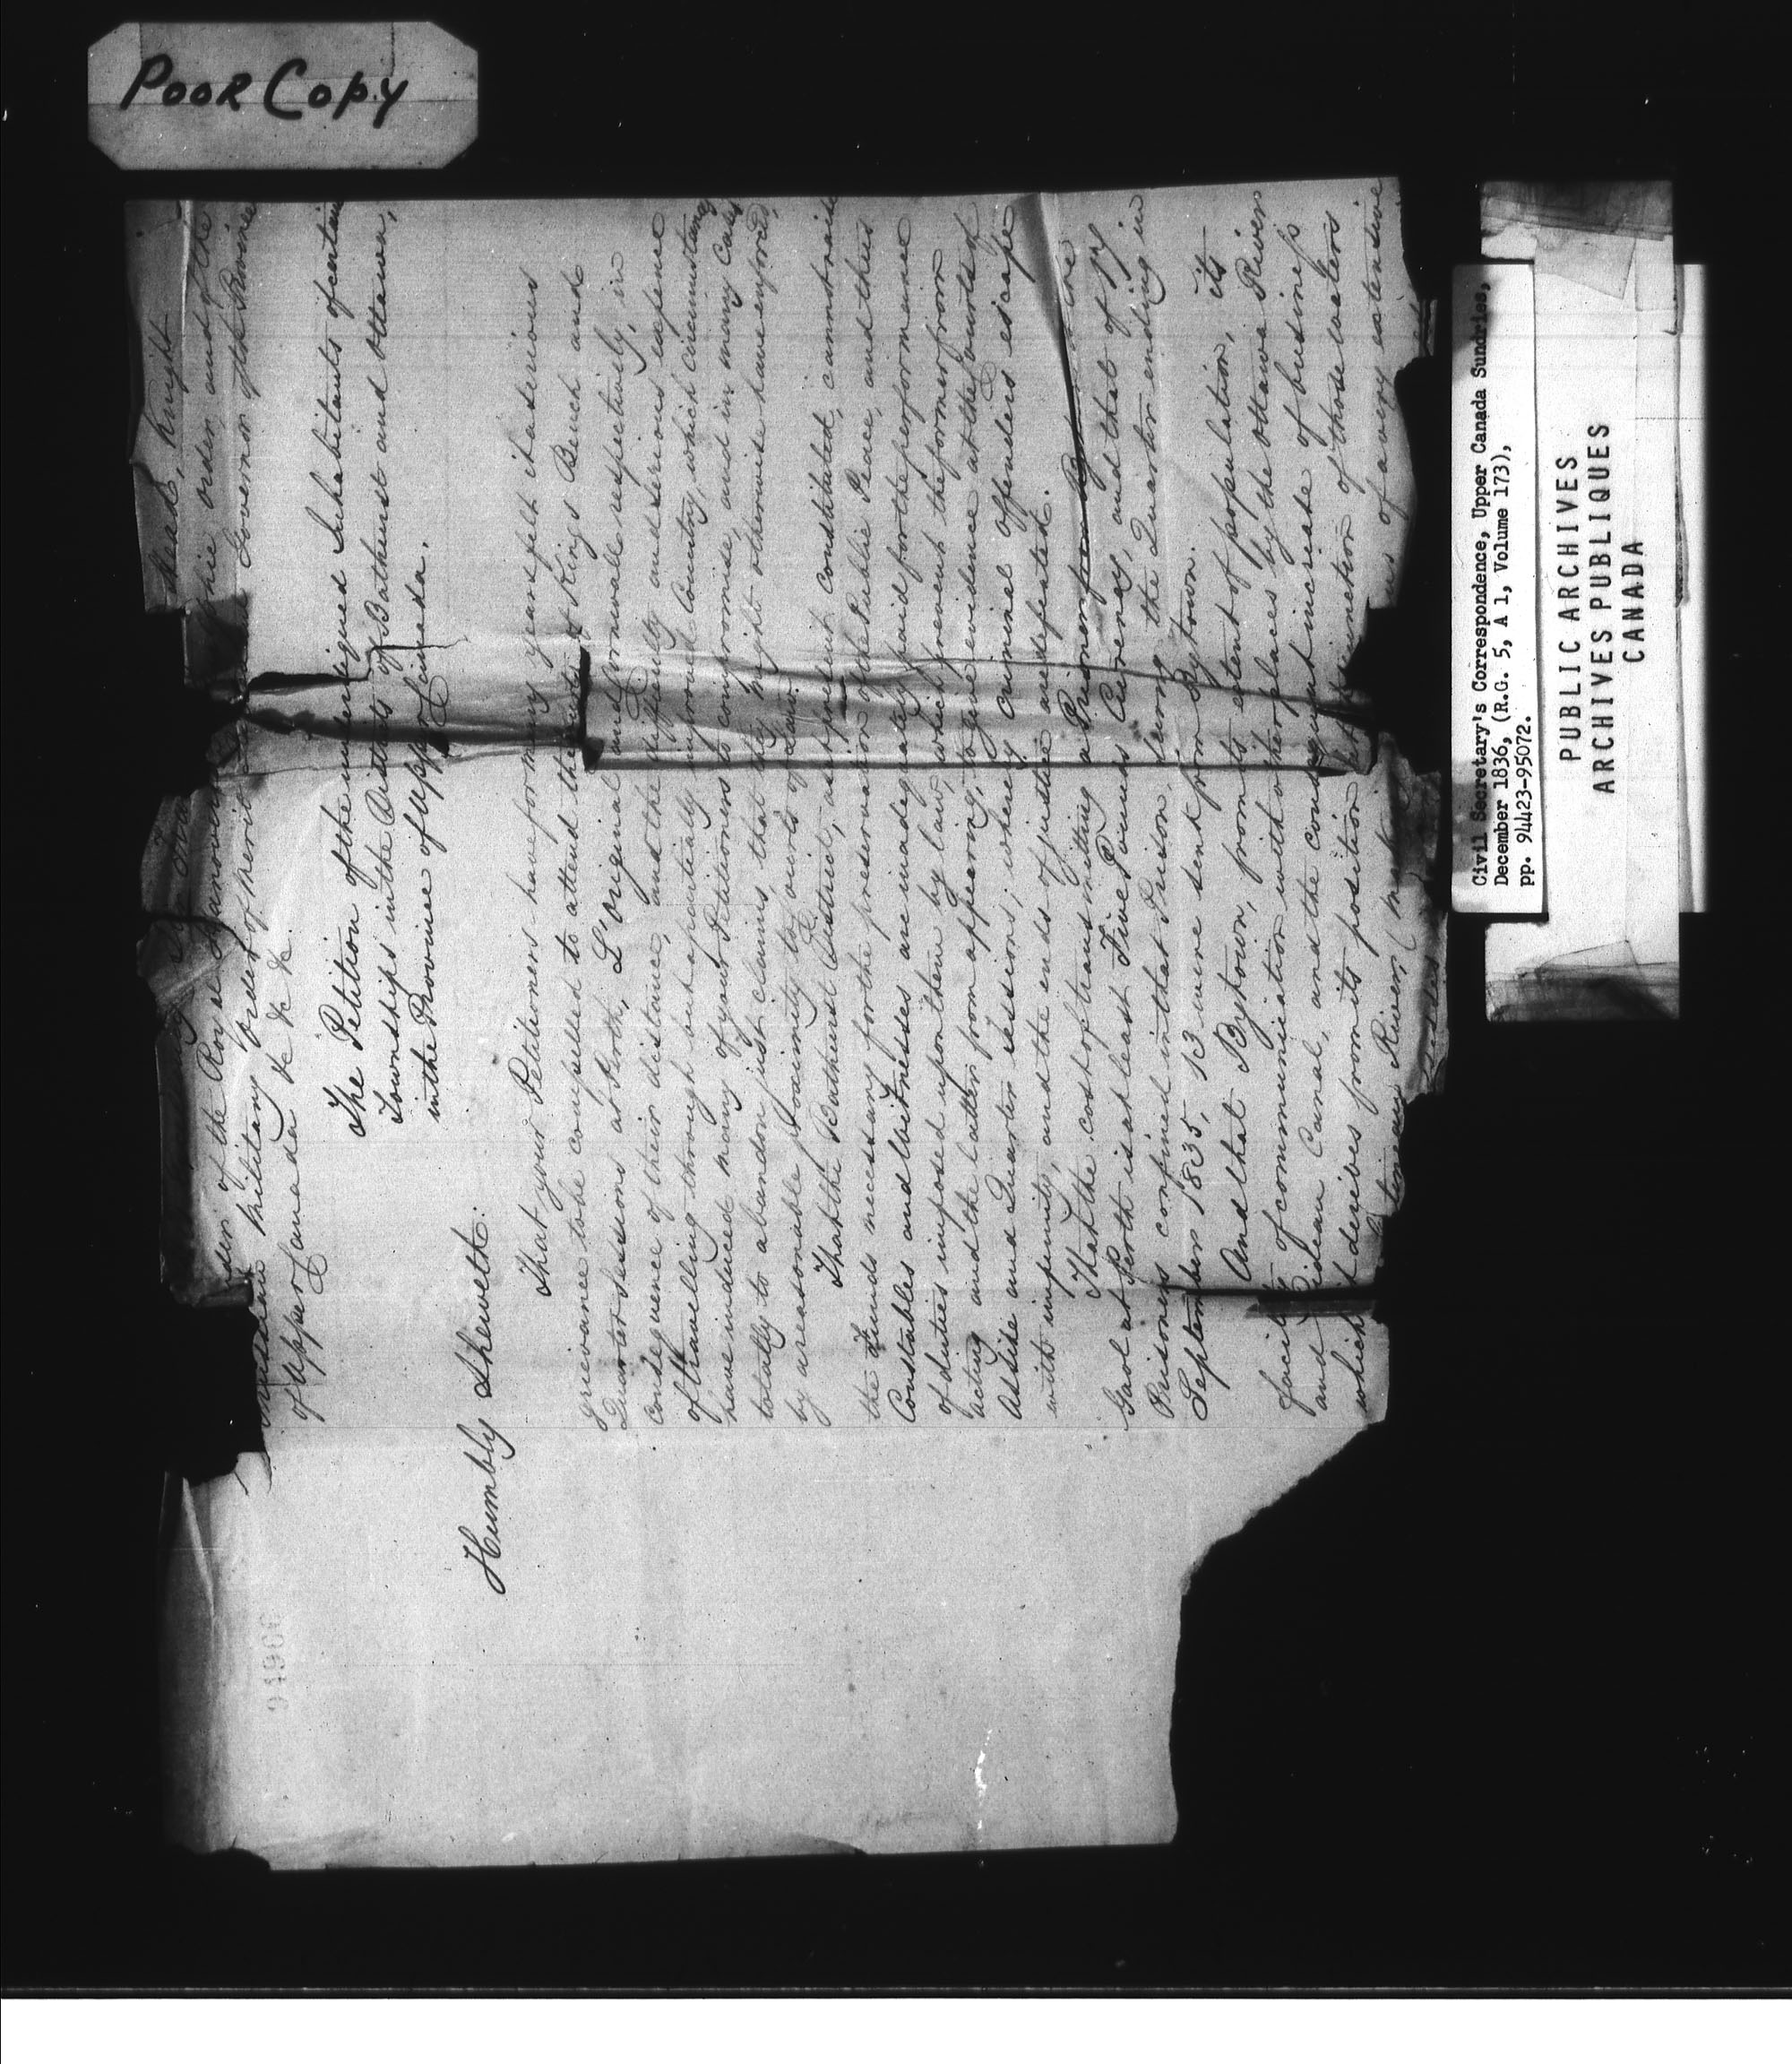 Poor Copy
Head, Knight
order and of the
of the Royal Hanoverian
Military Order of Merit Governor of the Province
of Upper Canada &c &c &c.
The Petition of the undersigned Inhabitants of certain
Townships in the Districts of Bathurst and Ottawa,
in the Province of Upper Canada.
Humbly Sheweth.
That your Petitioners have for many years felt it a serious
grievance to be compelled to attend the Courts of Kings Bench and
Quarter Sessions at Perth, L'Original and Cornwall respectively, in
consequence of their distance, and the difficulty and serious expence
of travelling through but a partially improved Country, which circumstances
have induced many of your Petitioners to compromise, and in many cases
totally to abandon just claims, that they might otherwise have enforced,
by a reasonable proximity to Courts of Law.
That the Bathurst District, as at present constituted, cannot raise
the Funds necessary for the preservation of the Public Peace, and thus
Constables and Witnesses are inadequately paid for the performance
of duties imposed upon them by law, which prevent the former from
acting and the latter from appearing, to give evidence at the Courts of
Assize and Quarter Sessions; whereby criminal offenders escape
with impunity, and the ends of justice are defeated.
That the cost of transmitting a Prisoner from Bytown to the
Gaol at Perth is at least Five Pounds Currency, and that of 17
Prisoners confined in that Prison, during the Quarter ending in
September 1835, 13 were sent from Bytown.
And that Bytown, from its extent of population, its
facility of communication with other places by the Ottawa River
and Rideau Canal, and the consequent increase of business
which it derives from its position at the junction of those waters
River, of a very extensive
94966
Civil Secretary's Correspondence, Upper Canada Sundries,
December 1836, (R.G. 5, A 1, Volume 173),
pp. 94423-95072.
PUBLIC ARCHIVES
ARCHIVES PUBLIQUES
CANADA